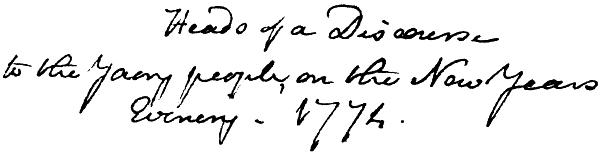 Heads of a Discourse
to the Young people, on the New Years
Evening - 1774.